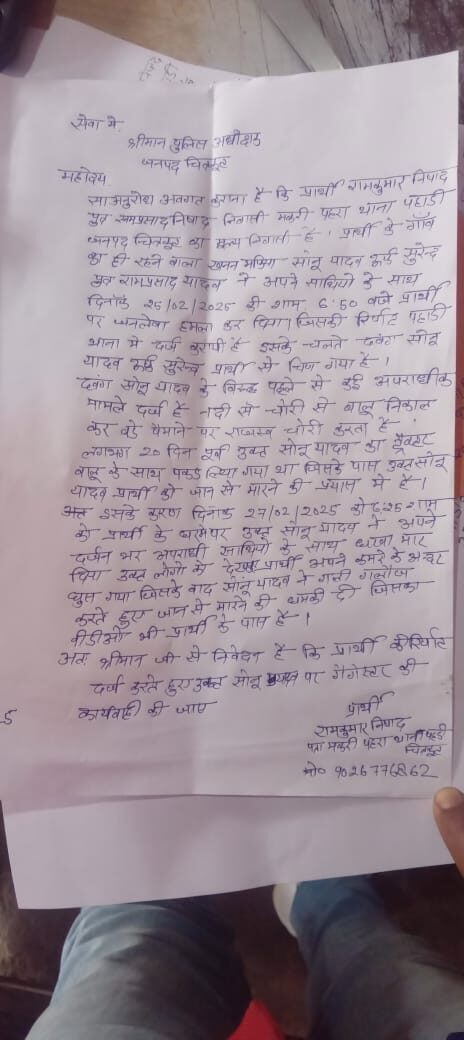 सेवा में,
श्रीमान पुलिस अधीक्षक
जनपद चित्रकूट
महोदय
सानुरोध अवगत कराना है कि प्रार्थी रामकुमार निषाद
पुत्र रामप्रसाद निषाद निवासी मकरी पहरा थाना पहाडी
जनपद चित्रकूट का मूल निवासी है। प्रार्थी के गाँव
का ही रहने वाला खनन मफिया सोनू यादव उर्फ सुरेन्द्र
पुत्र रामप्रसाद यादव ने अपने साथियो के साथ
दिनांक 25/02/2025 की शाम 6:50 बजे प्रार्थी
पर जानलेवा हमला कर दिया। जिसकी रिर्पोट पहाडी
थाना मे दर्ज करायी है इसके चलते दबंग सोनू
यादव उर्फ सुरेन्द्र प्रार्थी से चिढ गया है।
दबंग सोनू यादव के विरुद्ध पहले से कई अपराधीक
मामले दर्ज है नदी से चोरी से बालू निकाल
कर बडे पैमाने पर राजस्व चोरी करता है।
लगभग 20 दिन पूर्व उक्त सोनू यादव का ट्रैक्टर
बालू के साथ पकड लिया गया था जिसके उक्त सोनू
यादव प्रार्थी को जान से मारने की प्रयास में है।
इसके कारण दिनांक 27/02/2025 को 6:25 शाम
को प्रार्थी के घर पर उक्त सोनू यादव ने अपने
दर्जन भर अपराधी साथियो के साथ धावा मार
दिया उक्त लोगो को देखकर प्रार्थी अपने कमरे के अन्दर
घुस गया जिसके बाद सोनू यादव ने गाली गलौज
करते हुए जान से मारने की धमकी दी जिसका
वीडीओ भी प्रार्थी के पास है।
अतः श्रीमान जी से निवेदन है कि प्रार्थी की रिर्पोट
दर्ज करते हुए उक्त सोनू यादव पर गैंगेस्टर की
कार्यवाही की जाए
प्रार्थी
रामकुमार निषाद
मकरी पहरा थाना पहाडी
चित्रकूट
मो० 9026776862